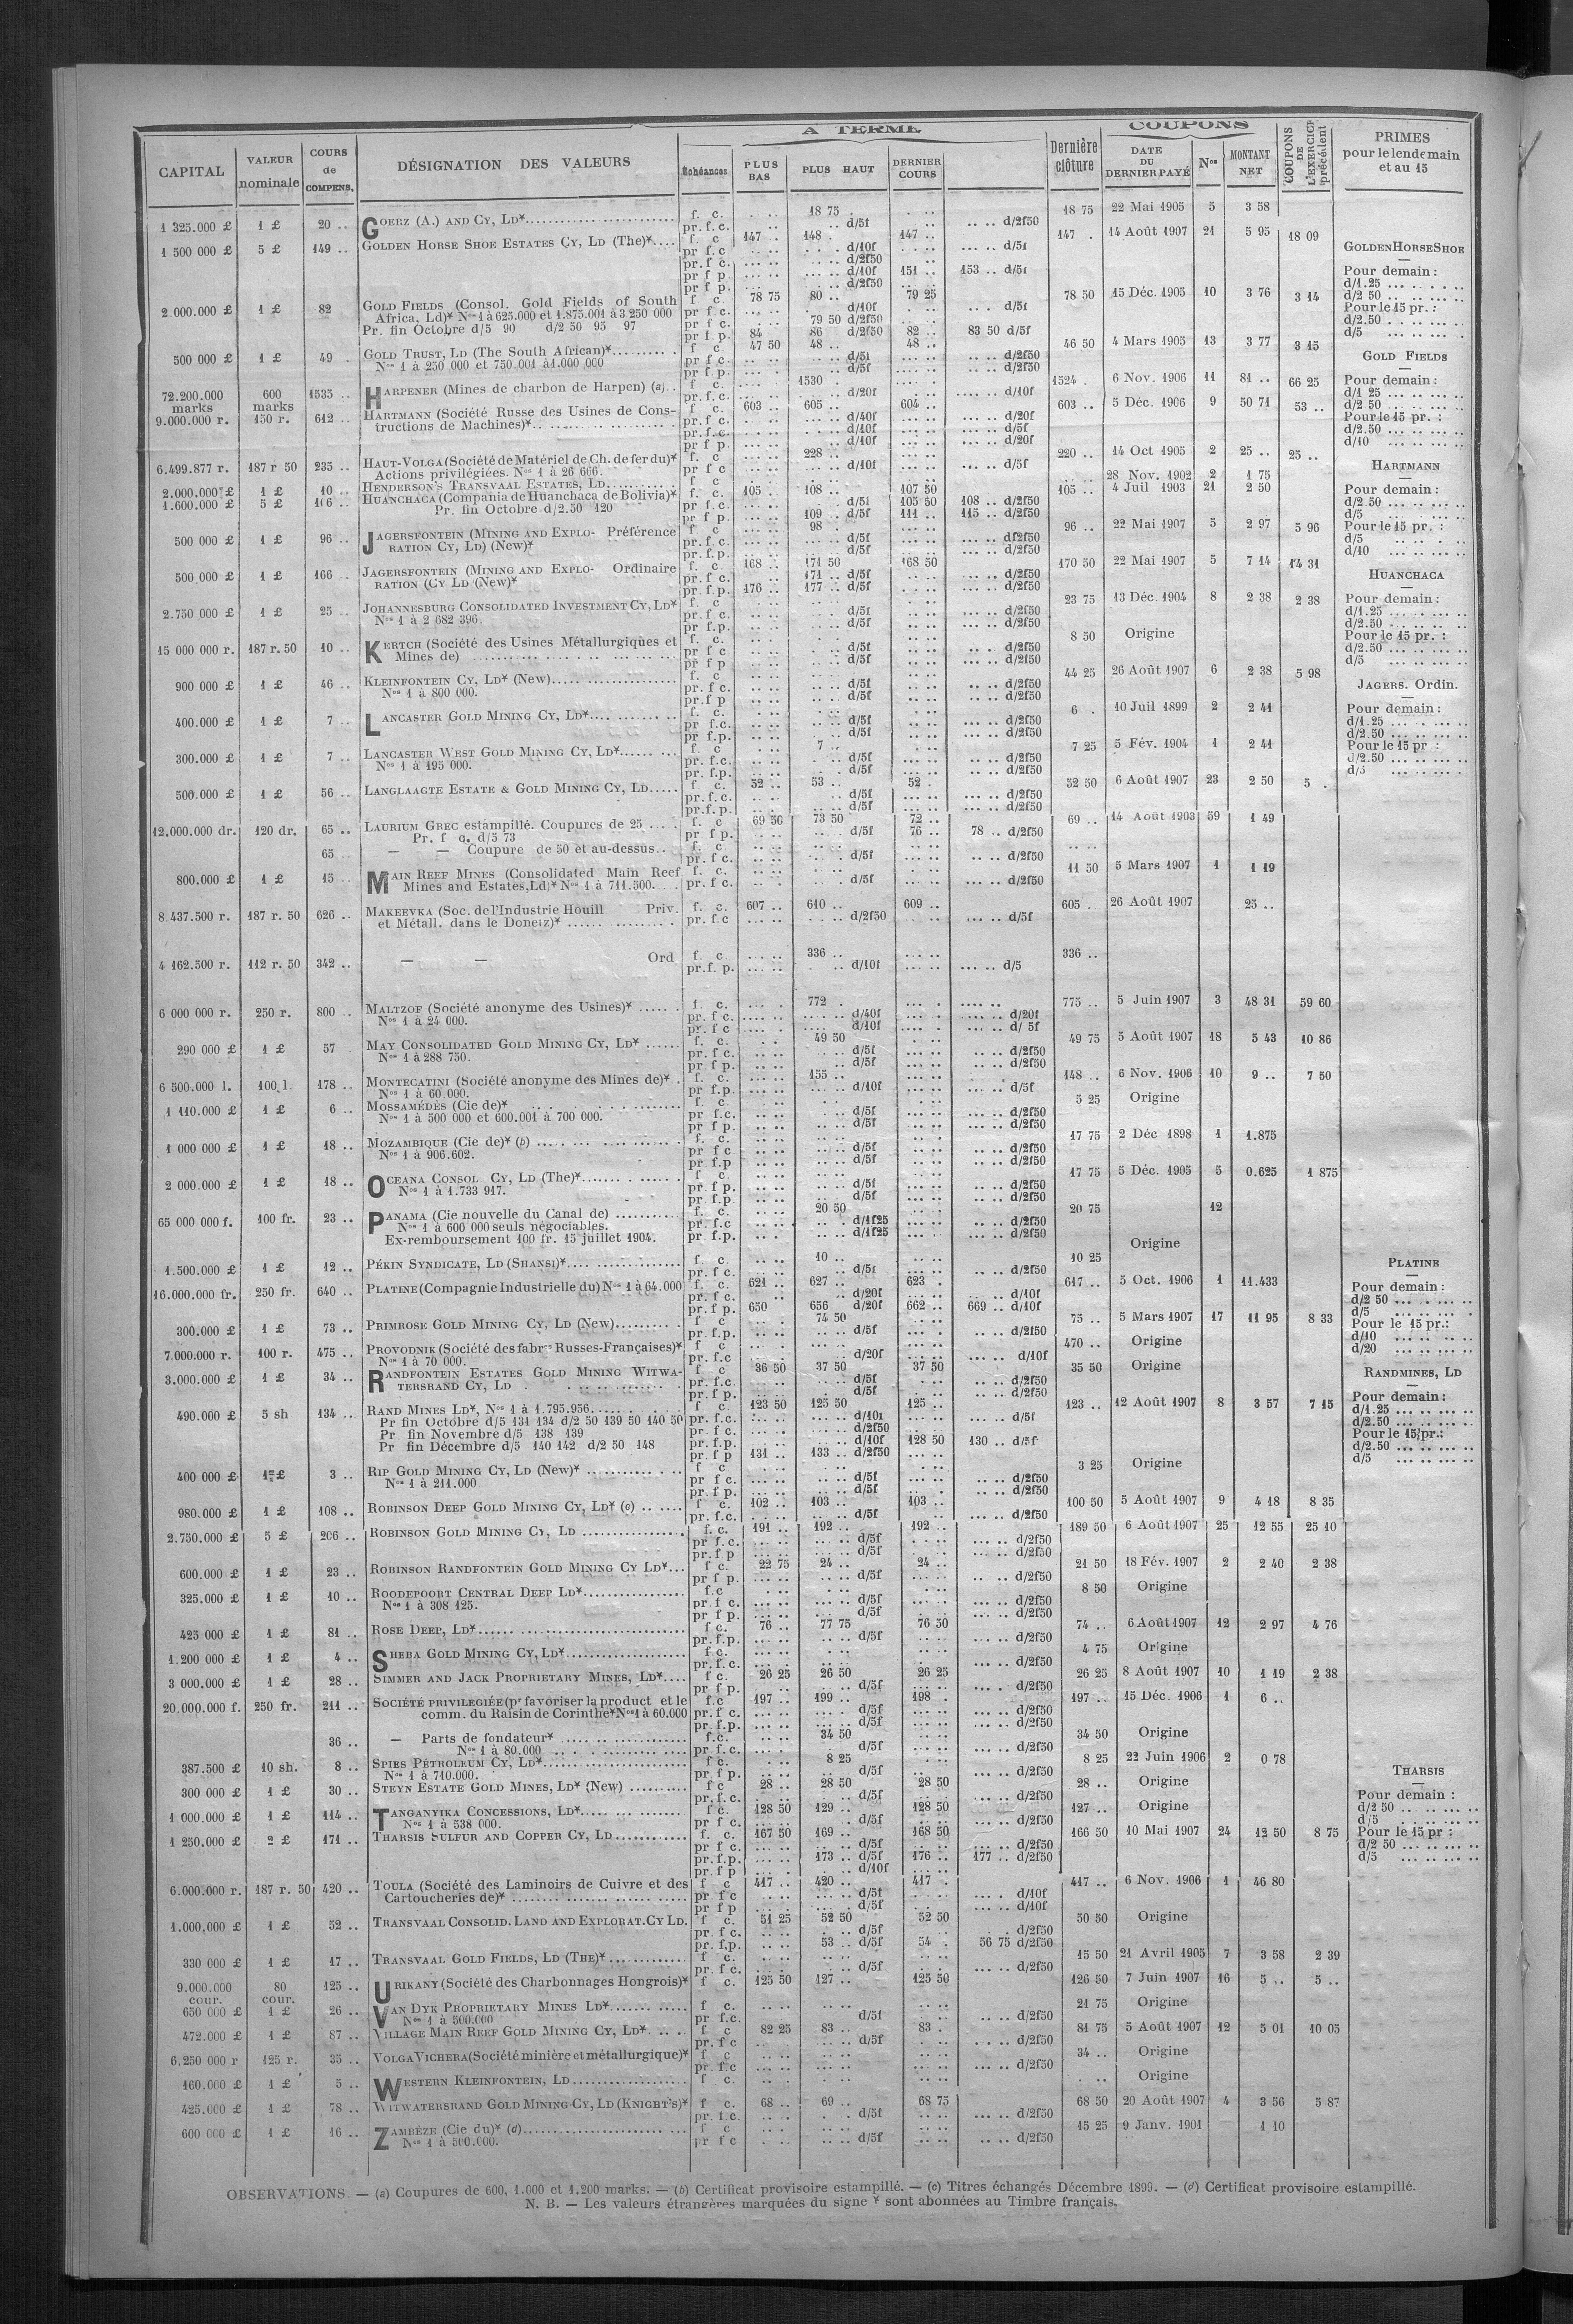 A TERME COUPONS
CAPITAL VALEUR nominale COURS de COMPENS. DÉSIGNATION DES VALEURS Échéances PLUS BAS PLUS HAUT DERNIER COURS Dernière clôture DATE DU DERNIER PAYÉ Nos MONTANT NET COUPONS DE L'EXERCICE précédent PRIMES pour le lendemain et au 15
1 325.000 £ 1 £ 20 .. GOERZ (A.) AND CY, LD* f. c. 18 75 18 75 22 Mai 1905 5 3 58
pr. f. c. d/5f d/2f50
1 500 000 £ 5 £ 149 .. GOLDEN HORSE SHOE ESTATES CY, LD (The)* f. c 147 .. 148 . 147 .. 147 . 14 Août 1907 21 5 95 18 09
pr. f c d/10f d/5f
pr. f c. d/2f50
pr f p d/10f 151 .. 153 .. d/5f
pr f p. d/2f50
2.000.000 £ 1 £ 82 GOLD FIELDS (Consol. Gold Fields of South f c 78 75 80 .. 79 25 78 50 15 Déc. 1905 10 3 76 3 14
Africa, Ld)* Nos 1 à 625.000 et 1.875.001 à 3 250 000 pr f c. d/10f d/5f
Pr. fin Octobre d/5 90 d/2 50 95 97 pr f c. 79 50 d/2f50
pr f p. 84 86 d/2f50 82 . 83 50 d/5f
500 000 £ 1 £ 49 . GOLD TRUST, LD (The South African)* f c. 47 50 48 .. 48 .. 46 50 4 Mars 1905 13 3 77 3 15
Nos 1 à 250 000 et 750.001 à 1.000 000 pr f c. d/5f d/2f50
pr f p. d/5f d/2f50
72.200.000 marks 600 marks 1535 .. HARPENER (Mines de charbon de Harpen) (a) f c. 1530 . 1524 . 6 Nov. 1906 11 81 .. 66 25
pr. f. c. d/20f d/10f
9.000.000 r. 150 r. 612 .. HARTMANN (Société Russe des Usines de Cons- f. c. 603 .. 605 .. 604 .. 603 .. 5 Déc. 1906 9 50 71 53 ..
tructions de Machines)* pr. f c. d/40f d/20f
pr. f. c. d/10f d/5f
pr f p. d/10f d/20f
6.499.877 r. 187 r 50 235 .. HAUT-VOLGA (Société de Matériel de Ch. de fer du)* f. c 228 .. 220 .. 14 Oct 1905 2 25 .. 25 ..
Actions privilégiées. Nos 1 à 26 666. pr f c d/10f d/5f
2.000.000 £ 1 £ 10 .. HENDERSON'S TRANSVAAL ESTATES, LD 28 Nov. 1902 2 1 75
1.600.000 £ 5 £ 106 .. HUANCHACA (Compania de Huanchaca de Bolivia)* f. c. 105 . 108 .. 107 50 105 .. 4 Juil 1903 21 2 50
Pr. fin Octobre d/2.50 120 pr f. c. d/5f 105 50 108 .. d/2f50
pr f p. 109 .. d/5f 111 .. 115 .. d/2f50
500 000 £ 1 £ 96 .. JAGERSFONTEIN (MINING AND EXPLO- Préférence f c 98 . 96 .. 22 Mai 1907 5 2 97 5 96
RATION CY, LD) (New)* pr. f. c. d/5f d/2f50
pr. f. p. d/5f d/2f50
500 000 £ 1 £ 166 .. JAGERSFONTEIN (MINING AND EXPLO- Ordinaire f. c. 168 .. 171 50 168 50 170 50 22 Mai 1907 5 7 14 14 31
RATION (CY LD (New)* pr f c. 171 .. d/5f d/2f50
pr. f. p. 176 .. 177 .. d/5f d/2f50
2.750 000 £ 1 £ 25 .. JOHANNESBURG CONSOLIDATED INVESTMENT CY, LD* f. c 23 75 13 Déc. 1904 8 2 38 2 38
Nos 1 à 2 682 396. pr f. c. d/5f d/2f50
pr f. p. d/5f d/2f50
15 000 000 r. 187 r. 50 10 .. KERTCH (Société des Usines Métallurgiques et f. c. 8 50 Origine
Mines de) pr f c d/5f d/2f50
pr f p d/5f d/2f50
900 000 £ 1 £ 46 .. KLEINFONTEIN CY, LD* (New) f. c 44 25 26 Août 1907 6 2 38 5 98
Nos 1 à 800 000. pr. f c. d/5f d/2f50
pr. f p d/5f d/2f50
400.000 £ 1 £ 7 .. LANCASTER GOLD MINING CY, LD* f. c. 6 . 10 Juil 1899 2 2 41
pr f. c. d/5f d/2f50
pr f. p. d/5f d/2f50
300.000 £ 1 £ 7 .. LANCASTER WEST GOLD MINING CY, LD* f c 7 .. 7 25 5 Fév. 1904 1 2 41
Nos 1 à 195 000. pr. f. c. d/5f d/2f50
pr. f. p. d/5f d/2f50
500.000 £ 1 £ 56 .. LANGLAAGTE ESTATE & GOLD MINING CY, LD f. c 52 .. 53 .. 52 . 52 50 6 Août 1907 23 2 50 5 .
pr. f. c. d/5f d/2f50
pr. f. p. d/5f d/2f50
12.000.000 dr. 120 dr. 65 .. LAURIUM GREC estampillé. Coupures de 25 f. c 69 50 73 50 72 .. 69 .. 14 Août 1903 59 1 49
Pr. f c. d/5 73 pr f p. d/5f 76 .. 78 .. d/2f50
65 .. — — Coupure de 50 et au-dessus f. c
pr. f c. d/5f d/2f50
800.000 £ 1 £ 15 .. MAIN REEF MINES (Consolidated Main Reef f. c. 11 50 5 Mars 1907 1 1 19
Mines and Estates, Ld)* Nos 1 à 711.500. pr. f c. d/5f d/2f50
8.437.500 r. 187 r. 50 626 .. MAKEEVKA (Soc. de l'Industrie Houill Priv. f. c. 607 .. 610 .. 609 .. 605 . 26 Août 1907 25 ..
et Métall. dans le Donetz)* pr. f. c d/2f50 d/5f
4 162.500 r. 112 r. 50 342 .. — — Ord f c. 336 .. 336 ..
pr. f. p. d/10f d/5
6 000 000 r. 250 r. 800 .. MALTZOF (Société anonyme des Usines)* f. c. 772 . 775 .. 5 Juin 1907 3 48 31 59 60
Nos 1 à 24 000. pr. f c. d/40f d/20f
pr. f c d/10f d/ 5f
290 000 £ 1 £ 57 MAY CONSOLIDATED GOLD MINING CY, LD* f. c. 49 50 49 75 5 Août 1907 18 5 43 10 86
Nos 1 à 288 750. pr. f c. d/5f d/2f50
pr f p. d/5f d/2f50
6 500.000 l. 100 l. 178 .. MONTECATINI (Société anonyme des Mines de)* f. c. 155 .. 148 .. 6 Nov. 1906 10 9 .. 7 50
Nos 1 à 60 000. pr. f. p. d/10f d/5f
1 110.000 £ 1 £ 6 .. MOSSAMÉDÈS (Cie de)* f. c 5 25 Origine
Nos 1 à 500 000 et 600.001 à 700 000. pr f. c. d/5f d/2f50
pr f p. d/5f d/2f50
1 000 000 £ 1 £ 18 .. MOZAMBIQUE (Cie de)* (b) f. c. 17 75 2 Déc 1898 1 1.875
Nos 1 à 906.602. pr f c d/5f d/2f50
pr. f. p d/5f d/2f50
2 000.000 £ 1 £ 18 .. OCEANA CONSOL CY, LD (The)* f c. 17 75 5 Déc. 1905 5 0.625 1 875
Nos 1 à 1.733 917. pr. f p. d/5f d/2f50
pr. f. p. d/5f d/2f50
65 000 000 f. 100 fr. 23 .. PANAMA (Cie nouvelle du Canal de) f. c. 20 50 20 75 12
Nos 1 à 600 000 seuls négociables. pr. f. c d/1f25 d/2f50
Ex-remboursement 100 fr. 15 juillet 1904. pr. f. p. d/1f25 d/2f50 Origine
1.500.000 £ 1 £ 12 .. PÉKIN SYNDICATE, LD (SHANSI)* f. c 10 .. 10 25
pr. f c. d/5f d/2f50
16.000.000 fr. 250 fr. 640 .. PLATINE (Compagnie Industrielle du) Nos 1 à 64.000 f. c. 621 .. 627 .. 623 . 617 .. 5 Oct. 1906 1 11.433
pr. f c. d/20f d/10f
pr. f p. 650 656 d/20f 662 .. 669 .. d/10f
300.000 £ 1 £ 73 .. PRIMROSE GOLD MINING CY, LD (New) f c 74 50 75 .. 5 Mars 1907 17 11 95 8 33
pr. f. p. d/5f d/2f50
7.000.000 r. 100 r. 475 .. PROVODNIK (Société des fabr. Russes-Françaises)* f c 470 .. Origine
Nos 1 à 70 000. pr. f. c d/20f d/10f
3.000.000 £ 1 £ 34 .. RANDFONTEIN ESTATES GOLD MINING WITWA- f c 36 50 37 50 37 50 35 50 Origine
TERSRAND CY, LD pr. f. c. d/5f d/2f50
pr. f p. d/5f d/2f50
490.000 £ 5 sh 134 .. RAND MINES LD*, Nos 1 à 1.795.956 f c. 123 50 125 50 125 .. 123 .. 12 Août 1907 8 3 57 7 15
Pr fin Octobre d/5 131 134 d/2 50 139 50 140 50 pr. f. c. d/10f d/5f
Pr fin Novembre d/5 138 139 pr. f c. d/2f50
Pr fin Décembre d/5 140 142 d/2 50 148 pr. f. p. d/10f 128 50 130 .. d/5f
pr f p 131 .. 133 .. d/2f50
400 000 £ 1 £ 3 .. RIP GOLD MINING CY, LD (New)* f c 3 25 Origine
Nos 1 à 211.000 pr f c. d/5f d/2f50
pr. f p. d/5f d/2f50
980.000 £ 1 £ 108 .. ROBINSON DEEP GOLD MINING CY, LD* (c) f c. 102 .. 103 .. 103 .. 100 50 5 Août 1907 9 4 18 8 35
pr. f. c. d/5f d/2f50
2.750.000 £ 5 £ 206 .. ROBINSON GOLD MINING CY, LD f. c. 191 .. 192 .. 192 .. 189 50 6 Août 1907 25 12 55 25 10
pr f. c. d/5f d/2f50
pr. f p d/5f d/2f50
600.000 £ 1 £ 23 .. ROBINSON RANDFONTEIN GOLD MINING CY LD* f c. 22 75 24 .. 24 .. 21 50 18 Fév. 1907 2 2 40 2 38
pr f p. d/5f d/2f50
325.000 £ 1 £ 10 .. ROODEPOORT CENTRAL DEEP LD* f. c 8 50 Origine
Nos 1 à 308 125. pr. f c. d/5f d/2f50
pr f p. d/5f d/2f50
425 000 £ 1 £ 81 .. ROSE DEEP, LD* f c. 76 .. 77 75 76 50 74 .. 6 Août 1907 12 2 97 4 76
pr. f. p. d/5f d/2f50
1.200 000 £ 1 £ 4 .. SHEBA GOLD MINING CY, LD* f. c. 4 75 Origine
pr. f. c. d/2f50
3 000.000 £ 1 £ 28 .. SIMMER AND JACK PROPRIETARY MINES, LD* f c. 26 25 26 50 26 25 26 25 8 Août 1907 10 1 19 2 38
pr f p. d/5f d/2f50
20.000.000 f. 250 fr. 211 .. SOCIÉTÉ PRIVILEGIÉE (pr favoriser la product et le f. c 197 .. 199 .. 198 . 197 .. 15 Déc. 1906 1 6 ..
comm. du Raisin de Corinthe* Nos 1 à 60.000 pr. f c. d/5f d/2f50
pr. f. p. d/5f d/2f50
36 .. — Parts de fondateur* f. c. 34 50 34 50 Origine
Nos 1 à 80.000 pr f. c. d/5f d/2f50
387.500 £ 10 sh. 8 .. SPIES PÉTROLEUM CY, LD* f c. 8 25 8 25 22 Juin 1906 2 0 78
Nos 1 à 710.000. pr f p. d/5f d/2f50
300 000 £ 1 £ 30 .. STEYN ESTATE GOLD MINES, LD* (New) f c 28 .. 28 50 28 50 28 .. Origine
pr. f. c. d/5f d/2f50
1 000.000 £ 1 £ 114 .. TANGANYIKA CONCESSIONS, LD* f c. 128 50 129 .. 128 50 127 .. Origine
Nos 1 à 538 000. pr f c. d/5f d/2f50
1 250.000 £ 2 £ 171 .. THARSIS SULFUR AND COPPER CY, LD f. c. 167 50 169 .. 168 50 166 50 10 Mai 1907 24 12 50 8 75
pr f c. d/5f d/2f50
pr. f. p. 173 .. d/5f 176 .. 177 .. d/2f50
pr. f p d/10f
6.000.000 r. 187 r. 50 420 .. TOULA (Société des Laminoirs de Cuivre et des f c 417 .. 420 .. 417 . 417 .. 6 Nov. 1906 1 46 80
Cartoucheries de)* pr f c d/5f d/10f
pr f p d/5f d/10f
1.000.000 £ 1 £ 52 .. TRANSVAAL CONSOLID. LAND AND EXPLORAT. CY LD. f c. 51 25 52 50 52 50 50 50 Origine
pr. f c. d/5f d/2f50
pr. f. p. 53 .. d/5f 54 . 56 75 d/2f50
330 000 £ 1 £ 17 .. TRANSVAAL GOLD FIELDS, LD (THE)* f c. 15 50 21 Avril 1905 7 3 58 2 39
pr. f c. d/5f d/2f50
9.000.000 cour. 80 cour. 125 .. URIKANY (Société des Charbonnages Hongrois)* f c. 125 50 127 .. 125 50 126 50 7 Juin 1907 16 5 .. 5 ..
650 000 £ 1 £ 26 .. VAN DYK PROPRIETARY MINES LD* f c. 21 75 Origine
Nos 1 à 500.000 pr f. c. d/5f d/2f50
472.000 £ 1 £ 87 .. VILLAGE MAIN REEF GOLD MINING CY, LD* f c 82 25 83 .. 83 . 81 75 5 Août 1907 12 5 01 10 05
pr. f c d/5f d/2f50
6.250 000 r 125 r. 35 .. VOLGA VICHERA (Société minière et métallurgique)* f c 34 .. Origine
pr. f. c d/2f50
160.000 £ 1 £ 5 .. WESTERN KLEINFONTEIN, LD f c. Origine
425.000 £ 1 £ 78 .. WITWATERSRAND GOLD MINING CY, LD (KNIGHT'S)* f c. 68 .. 69 .. 68 75 68 50 20 Août 1907 4 3 56 5 87
pr. f c. d/5f d/2f50
600 000 £ 1 £ 16 .. ZAMBÈZE (Cie du)* (d) f c 15 25 9 Janv. 1901 1 10
Nos 1 à 500.000. pr f c d/5f d/2f50
GOLDEN HORSE SHOE
Pour demain :
d/1.25
d/2 50
Pour le 15 pr. :
d/2.50
d/5
GOLD FIELDS
Pour demain :
d/1 25
d/2 50
Pour le 15 pr. :
d/2.50
d/10
HARTMANN
Pour demain :
d/2 50
d/5
Pour le 15 pr. :
d/5
d/10
HUANCHACA
Pour demain :
d/1.25
d/2.50
Pour le 15 pr. :
d/2.50
d/5
JAGERS. Ordin.
Pour demain :
d/1.25
d/2.50
Pour le 15 pr :
d/2.50
d/5
PLATINE
Pour demain :
d/2 50
d/5
Pour le 15 pr.:
d/10
d/20
RANDMINES, LD
Pour demain :
d/1.25
d/2.50
Pour le 15 pr.:
d/2.50
d/5
THARSIS
Pour demain :
d/2 50
d/5
Pour le 15 pr :
d/2 50
d/5
OBSERVATIONS. — (a) Coupures de 600, 1.000 et 1.200 marks. — (b) Certificat provisoire estampillé. — (c) Titres échangés Décembre 1899. — (d) Certificat provisoire estampillé.
N. B. — Les valeurs étrangères marquées du signe * sont abonnées au Timbre français.